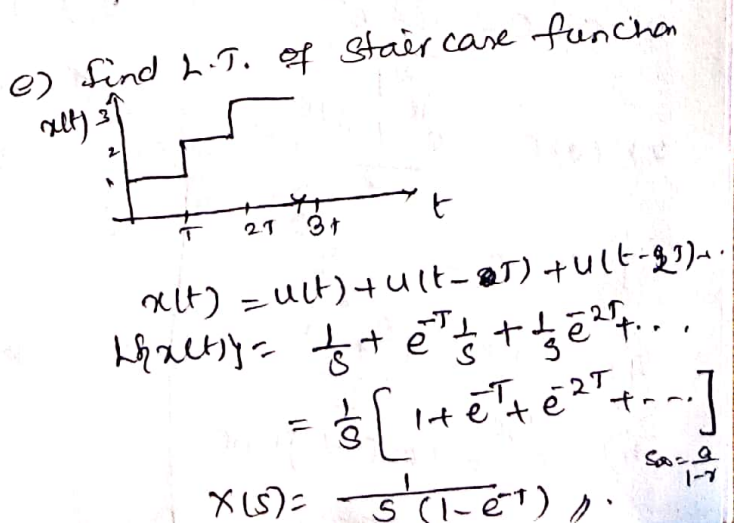 e) find L.T. of Stair case function
x(t) 3
2
1
T 2T 3T t
x(t) = u(t) + u(t-T) + u(t-2T)+..
L{x(t)} = 1/S + e^-T 1/S + 1/S e^-2T+...
= 1/S [ 1 + e^-T + e^-2T + ---]
S∞ = a/1-r
X(S) = 1/S (1-e^-T) //.